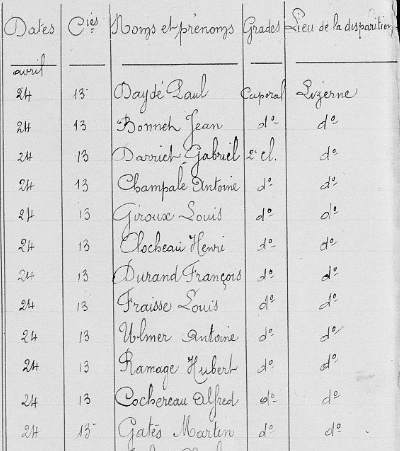 Dates Cies Noms et prénoms Grades Lieu de la disparition
avril
24 13 Daydé Paul Caporal Lizerne
24 13 Bonneh Jean do do
24 13 Darrich Gabriel 2e cl. do
24 13 Champale Antoine do do
24 13 Giroux Louis do do
24 13 Clocheau Henri do do
24 13 Durand François do do
24 13 Fraisse Louis do do
24 13 Ulmer Antoine do do
24 13 Ramage Hubert do do
24 13 Cochereau Alfred do do
24 13 Gatés Martin do do